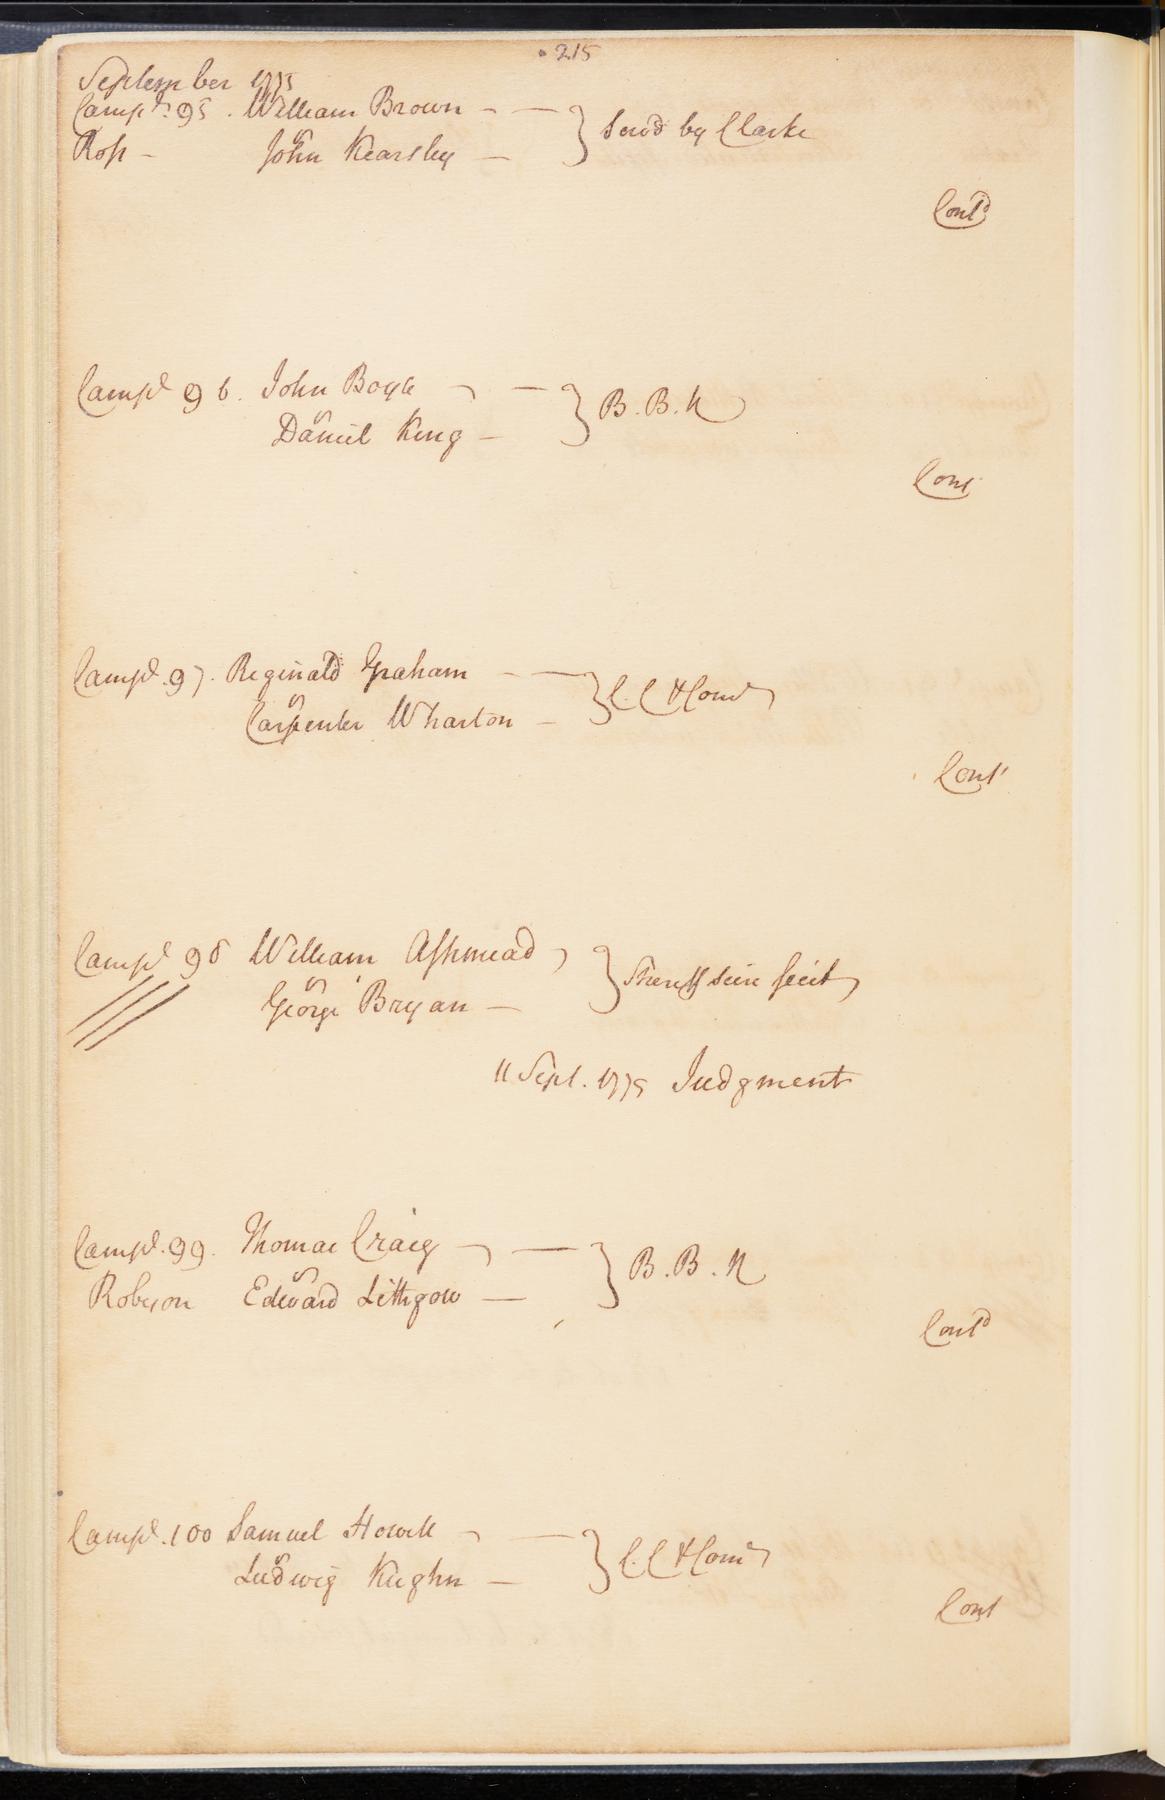 215
September 1775
Campl. 95. William Brown
Ross v John Kearsley } Servd by Clarke
Contd
Campl 96. John Boyle
v
Daniel King } B. B. N
Cont
Campl. 97. Reginald Graham
v
Carpenter Wharton } C. C & Comd
Cont
Campl 98 William Ashmead
v
George Bryan } Sheriff scire fecit
11 Sept. 1775 Judgment
Campl. 99. Thomas Craig
v
Robeson Edward Lithgow } B. B. N
Contd
Campl. 100 Samuel Howell
v
Ludwig Kughn } C. C & Comd
Cont